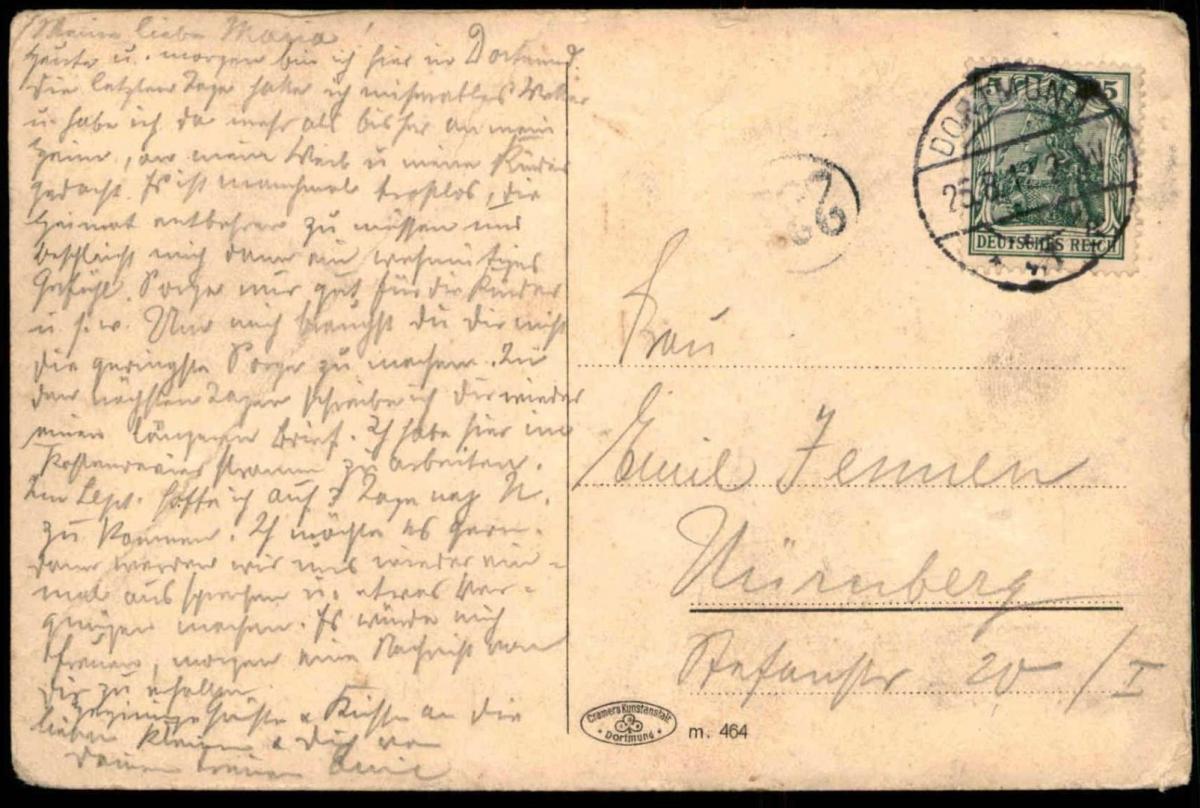 Meine liebe Maria!
Heute u. morgen bin ich hier in Dortmund.
Die letzten Tage hatte ich miserables Wetter
u. habe ich da mehr als bisher an mein
Heim, an mein Weib u meine Kinder
gedacht. Es ist manchmal trostlos, die
Heimat entbehren zu müssen und
beschleicht mich dann ein wehmütiges
Gefühl. Sorge nur gut für die Kinder
u. s. w. Um mich brauchst du Dir nicht
die geringste Sorge zu machen. In
den nächsten Tagen schreibe ich Dir wieder
einen längeren Brief. Ich habe hier im
stramm zu arbeiten.
Im Sept. hoffe ich auf Tage nach N.
zu kommen. Ich möchte es gern.
dann werden wir uns wieder ein-
mal aussprechen u. etwas Ver-
gnügen machen. Es würde mich
freuen, morgen eine Nachricht von
Dir zu erhalten.
Grüße & Küsse an die
lieben Kleinen & Dich von
Deinem treuen Emil
DORTMUND
5
DEUTSCHES REICH
Frau
Emil Jennen
Nürnberg
Stefanstr 20/I
Cramers Kunstanstalt
Dortmund
m. 464